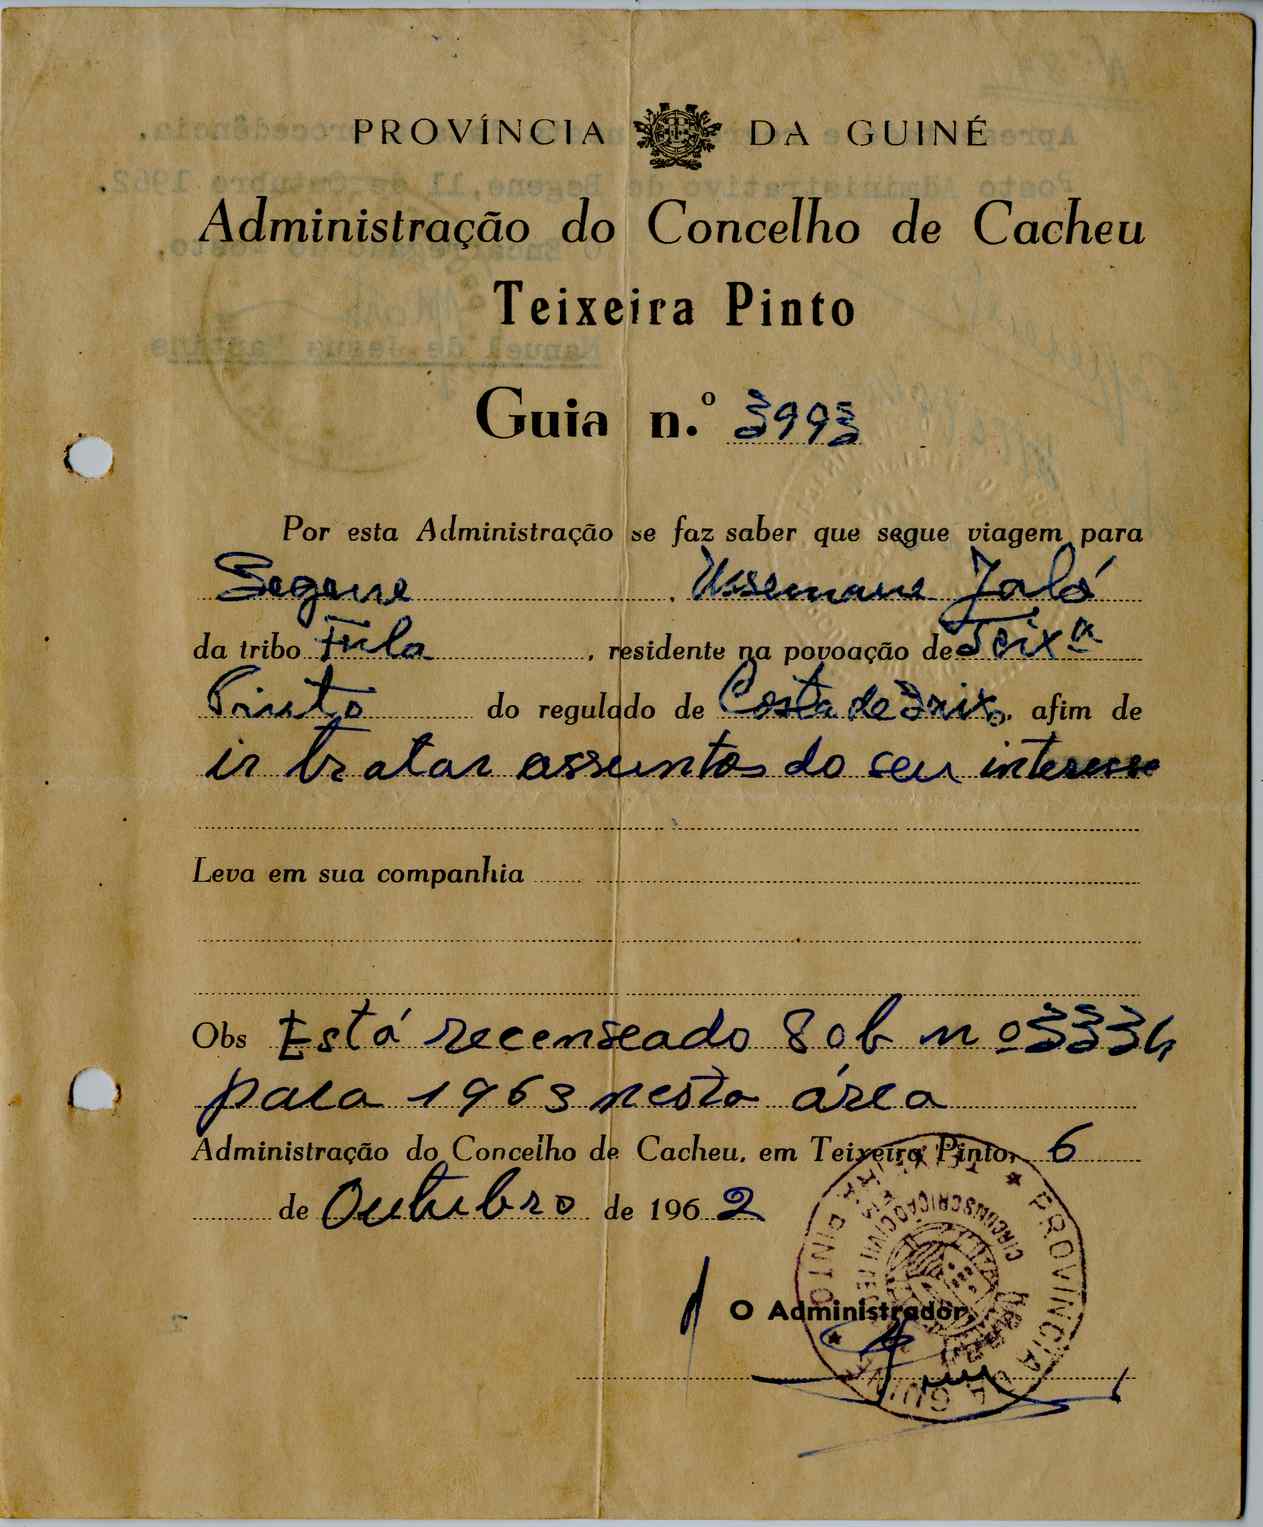 PROVÍNCIA DA GUINÉ
Administração do Concelho de Cacheu
Teixeira Pinto
Guia n.º 3993
Por esta Administração se faz saber que segue viagem para
Begene, Ussemane Jaló
da tribo Fula, residente na povoação de Teixª
Pinto do regulado de Costa de Baixo, afim de
ir tratar assuntos do seu interesse
Leva em sua companhia
Obs Está recenseado sob nº 3334
para 1963 nesta área
Administração do Concelho de Cacheu, em Teixeira Pinto, 6
de Outubro de 1962
O Administrador
PROVÍNCIA DA GUINÉ
CIRCUNSCRIÇÃO CIVIL DE
TEIXEIRA PINTO